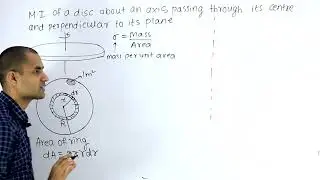 M.I. of a disc about an axis passing through its centre
and perpendicular to its plane
σ = mass
Area
mass per unit area
1m²
dr
r
R
Area of ring
dA = 2πrdr